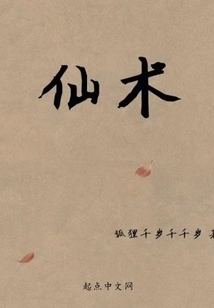 仙术
狐狸千岁千千岁 著
起点中文网